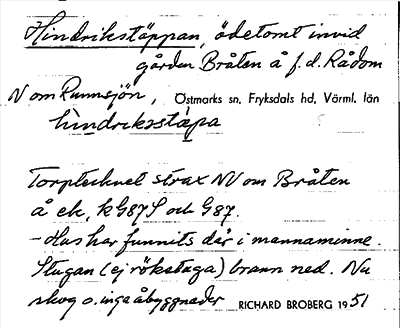 Hindrikstäppan, ödetomt invid
gården Bråten å f.d. Rådom
N om Runnsjön, Östmarks sn, Fryksdals hd, Värml. län
hìndriksstæ̀pa
Torptecknet strax NV om Bråten
å ek, k G87S och G87.
– Hus har funnits där i mannaminne.
Stugan (ej rökstuga) brann ned. Nu
skog o. inga åbyggnader RICHARD BROBERG 1951